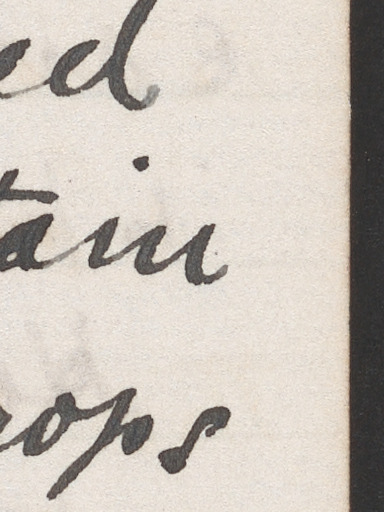 ed
tain
rops